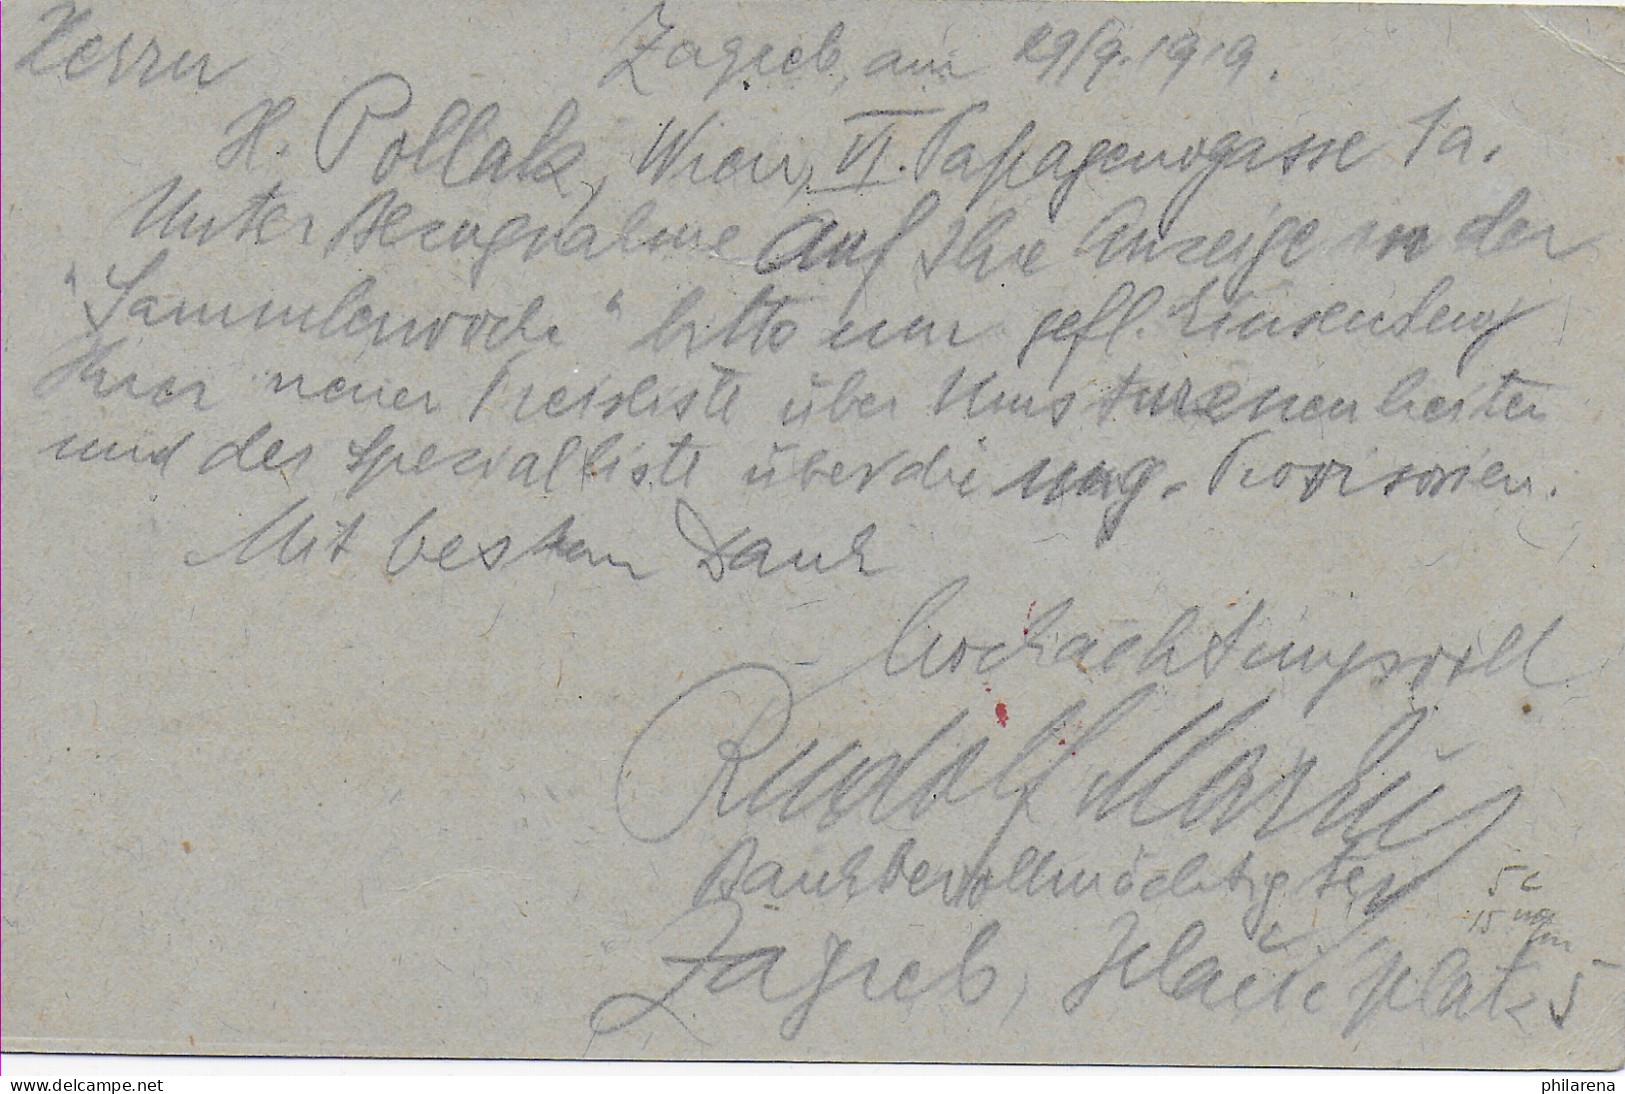 Herrn
Zagreb, am 29/9. 1919.
H. Pollak, Wien, VI. Papagenogasse 1a.
Unter Bezugnahme auf Ihre Anzeige in der
"Sammlerwoche" bitte um gefl. Einsendung
Ihrer neuen Preisliste über Umsturzneuheiten
und der Spezialliste über die ung. Provisorien.
Mit bestem Dank
hochachtungsvoll
Rudolf Markus
Bankbevollmächtigter
Zagreb, Jelačić platz 5
5 c
15
philarena